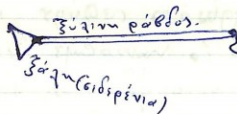 ξύλινη ράβδος.
ξάλη (σιδερένια)